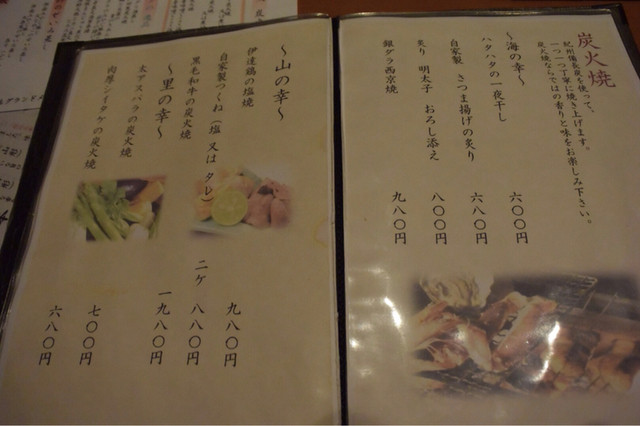 炭火焼
紀州備長炭を使って、
一つ一つ丁寧に焼き上げます。
炭火焼ならではの香りと味をお楽しみ下さい。
〜海の幸〜
ハタハタの一夜干し 六〇〇円
自家製 さつま揚げの炙り 六八〇円
炙り 明太子 おろし添え 八〇〇円
銀ダラ西京焼 九八〇円
〜山の幸〜
伊達鶏の塩焼 九八〇円
自家製つくね（塩 又は タレ） 二ケ 八八〇円
黒毛和牛の炭火焼 一九八〇円
〜里の幸〜
太アスパラの炭火焼 七〇〇円
肉厚シイタケの炭火焼 六八〇円